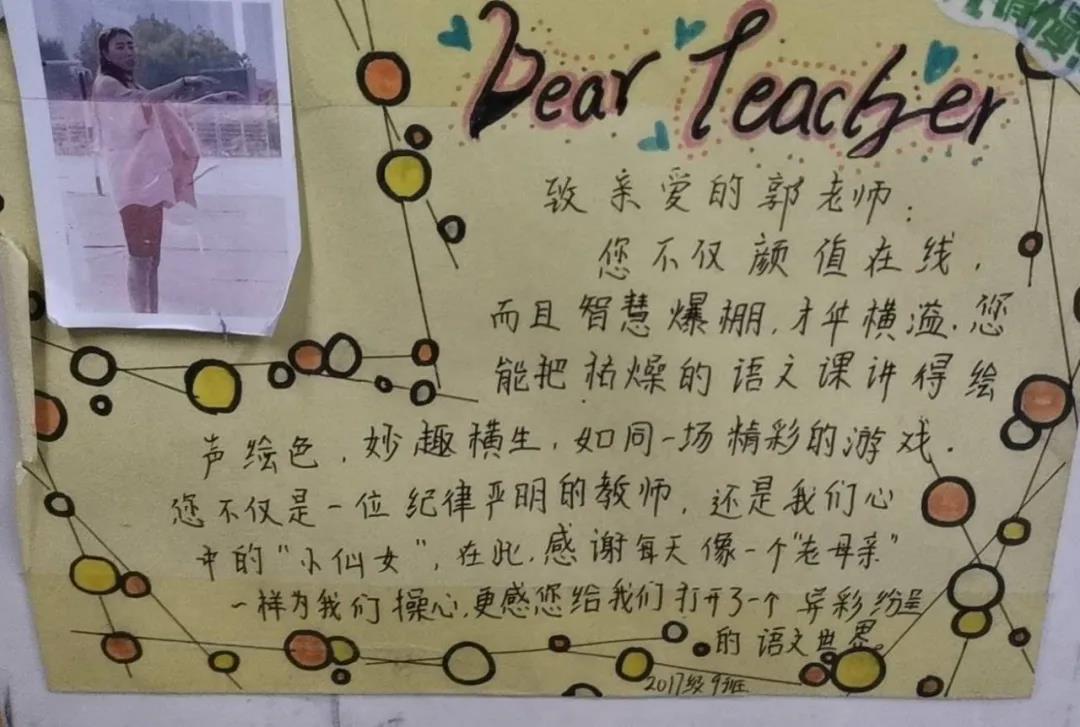 Dear Teacher
致亲爱的郭老师:
您不仅颜值在线,
而且智慧爆棚,才华横溢.您
能把枯燥的语文课讲得绘
声绘色,妙趣横生,如同一场精彩的游戏.
您不仅是一位纪律严明的教师,还是我们心
中的"小仙女",在此,感谢每天像一个"老母亲"
一样为我们操心,更感您给我们打开了一个异彩纷呈
的语文世界。
2017级9班